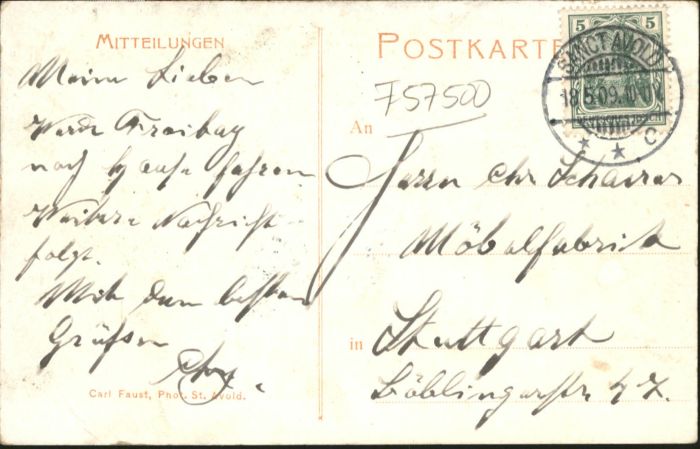 MITTEILUNGEN
Meine Lieben
Werde Freitag
nach Hause fahren
Weitere Nachricht
folgt.
Mit den besten
Grüßen
Carl Faust, Phot. St. Avold.
POSTKARTE
5 5
SANCT AVOLD
18.5.09.
* * C
757500
An
Herrn Chr Scharrer
Möbelfabrik
in Stuttgart
Böblingerstr 47.